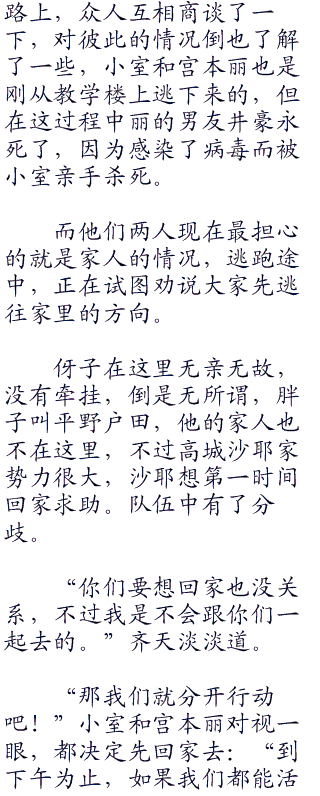 路上，众人互相商谈了一
下，对彼此的情况倒也了解
了一些，小室和宫本丽也是
刚从教学楼上逃下来的，但
在这过程中丽的男友井豪永
死了，因为感染了病毒而被
小室亲手杀死。
而他们两人现在最担心
的就是家人的情况，逃跑途
中，正在试图劝说大家先逃
往家里的方向。
伢子在这里无亲无故，
没有牵挂，倒是无所谓，胖
子叫平野户田，他的家人也
不在这里，不过高城沙耶家
势力很大，沙耶想第一时间
回家求助。队伍中有了分
歧。
“你们要想回家也没关
系，不过我是不会跟你们一
起去的。”齐天淡淡道。
“那我们就分开行动
吧！”小室和宫本丽对视一
眼，都决定先回家去：“到
下午为止，如果我们都能活